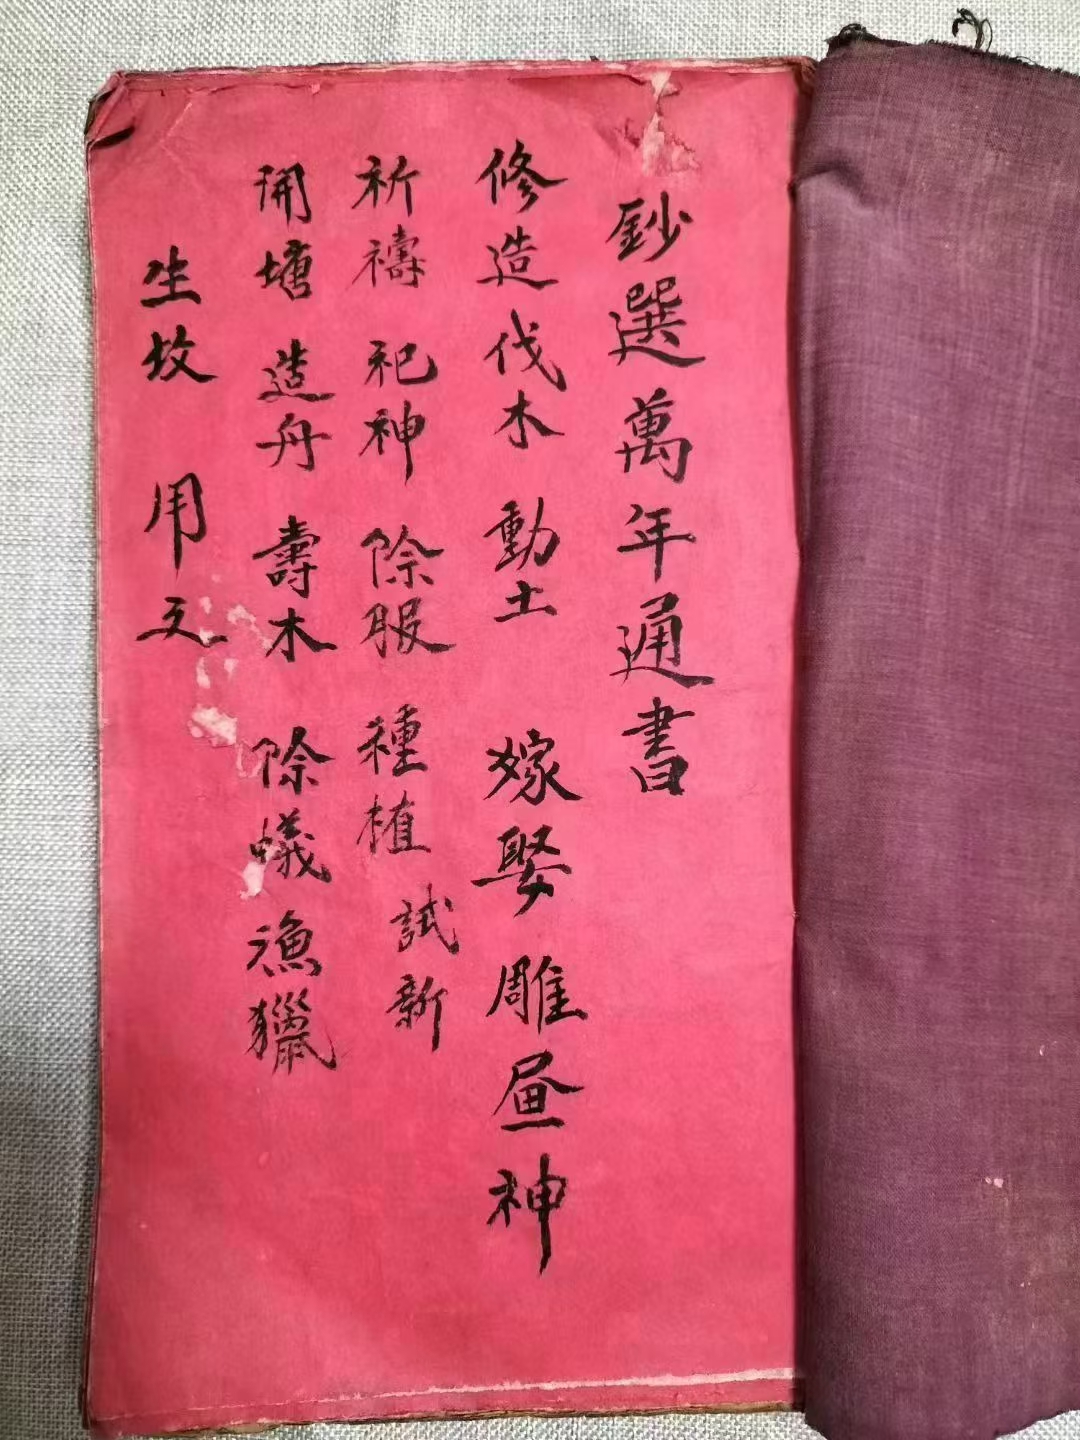 鈔選萬年通書
修造伐木 動土 嫁娶雕畫神
祈禱 祀神 除服 種植 試新
開塘 造舟 壽木 除蟻 漁獵
生坟 用之